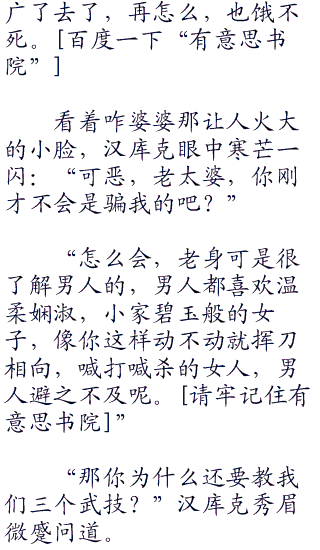 广了去了，再怎么，也饿不
死。[百度一下“有意思书
院”]
看着咋婆婆那让人火大
的小脸，汉库克眼中寒芒一
闪：“可恶，老太婆，你刚
才不会是骗我的吧？”
“怎么会，老身可是很
了解男人的，男人都喜欢温
柔娴淑，小家碧玉般的女
子，像你这样动不动就挥刀
相向，喊打喊杀的女人，男
人避之不及呢。[请牢记住有
意思书院]”
“那你为什么还要教我
们三个武技？”汉库克秀眉
微蹙问道。